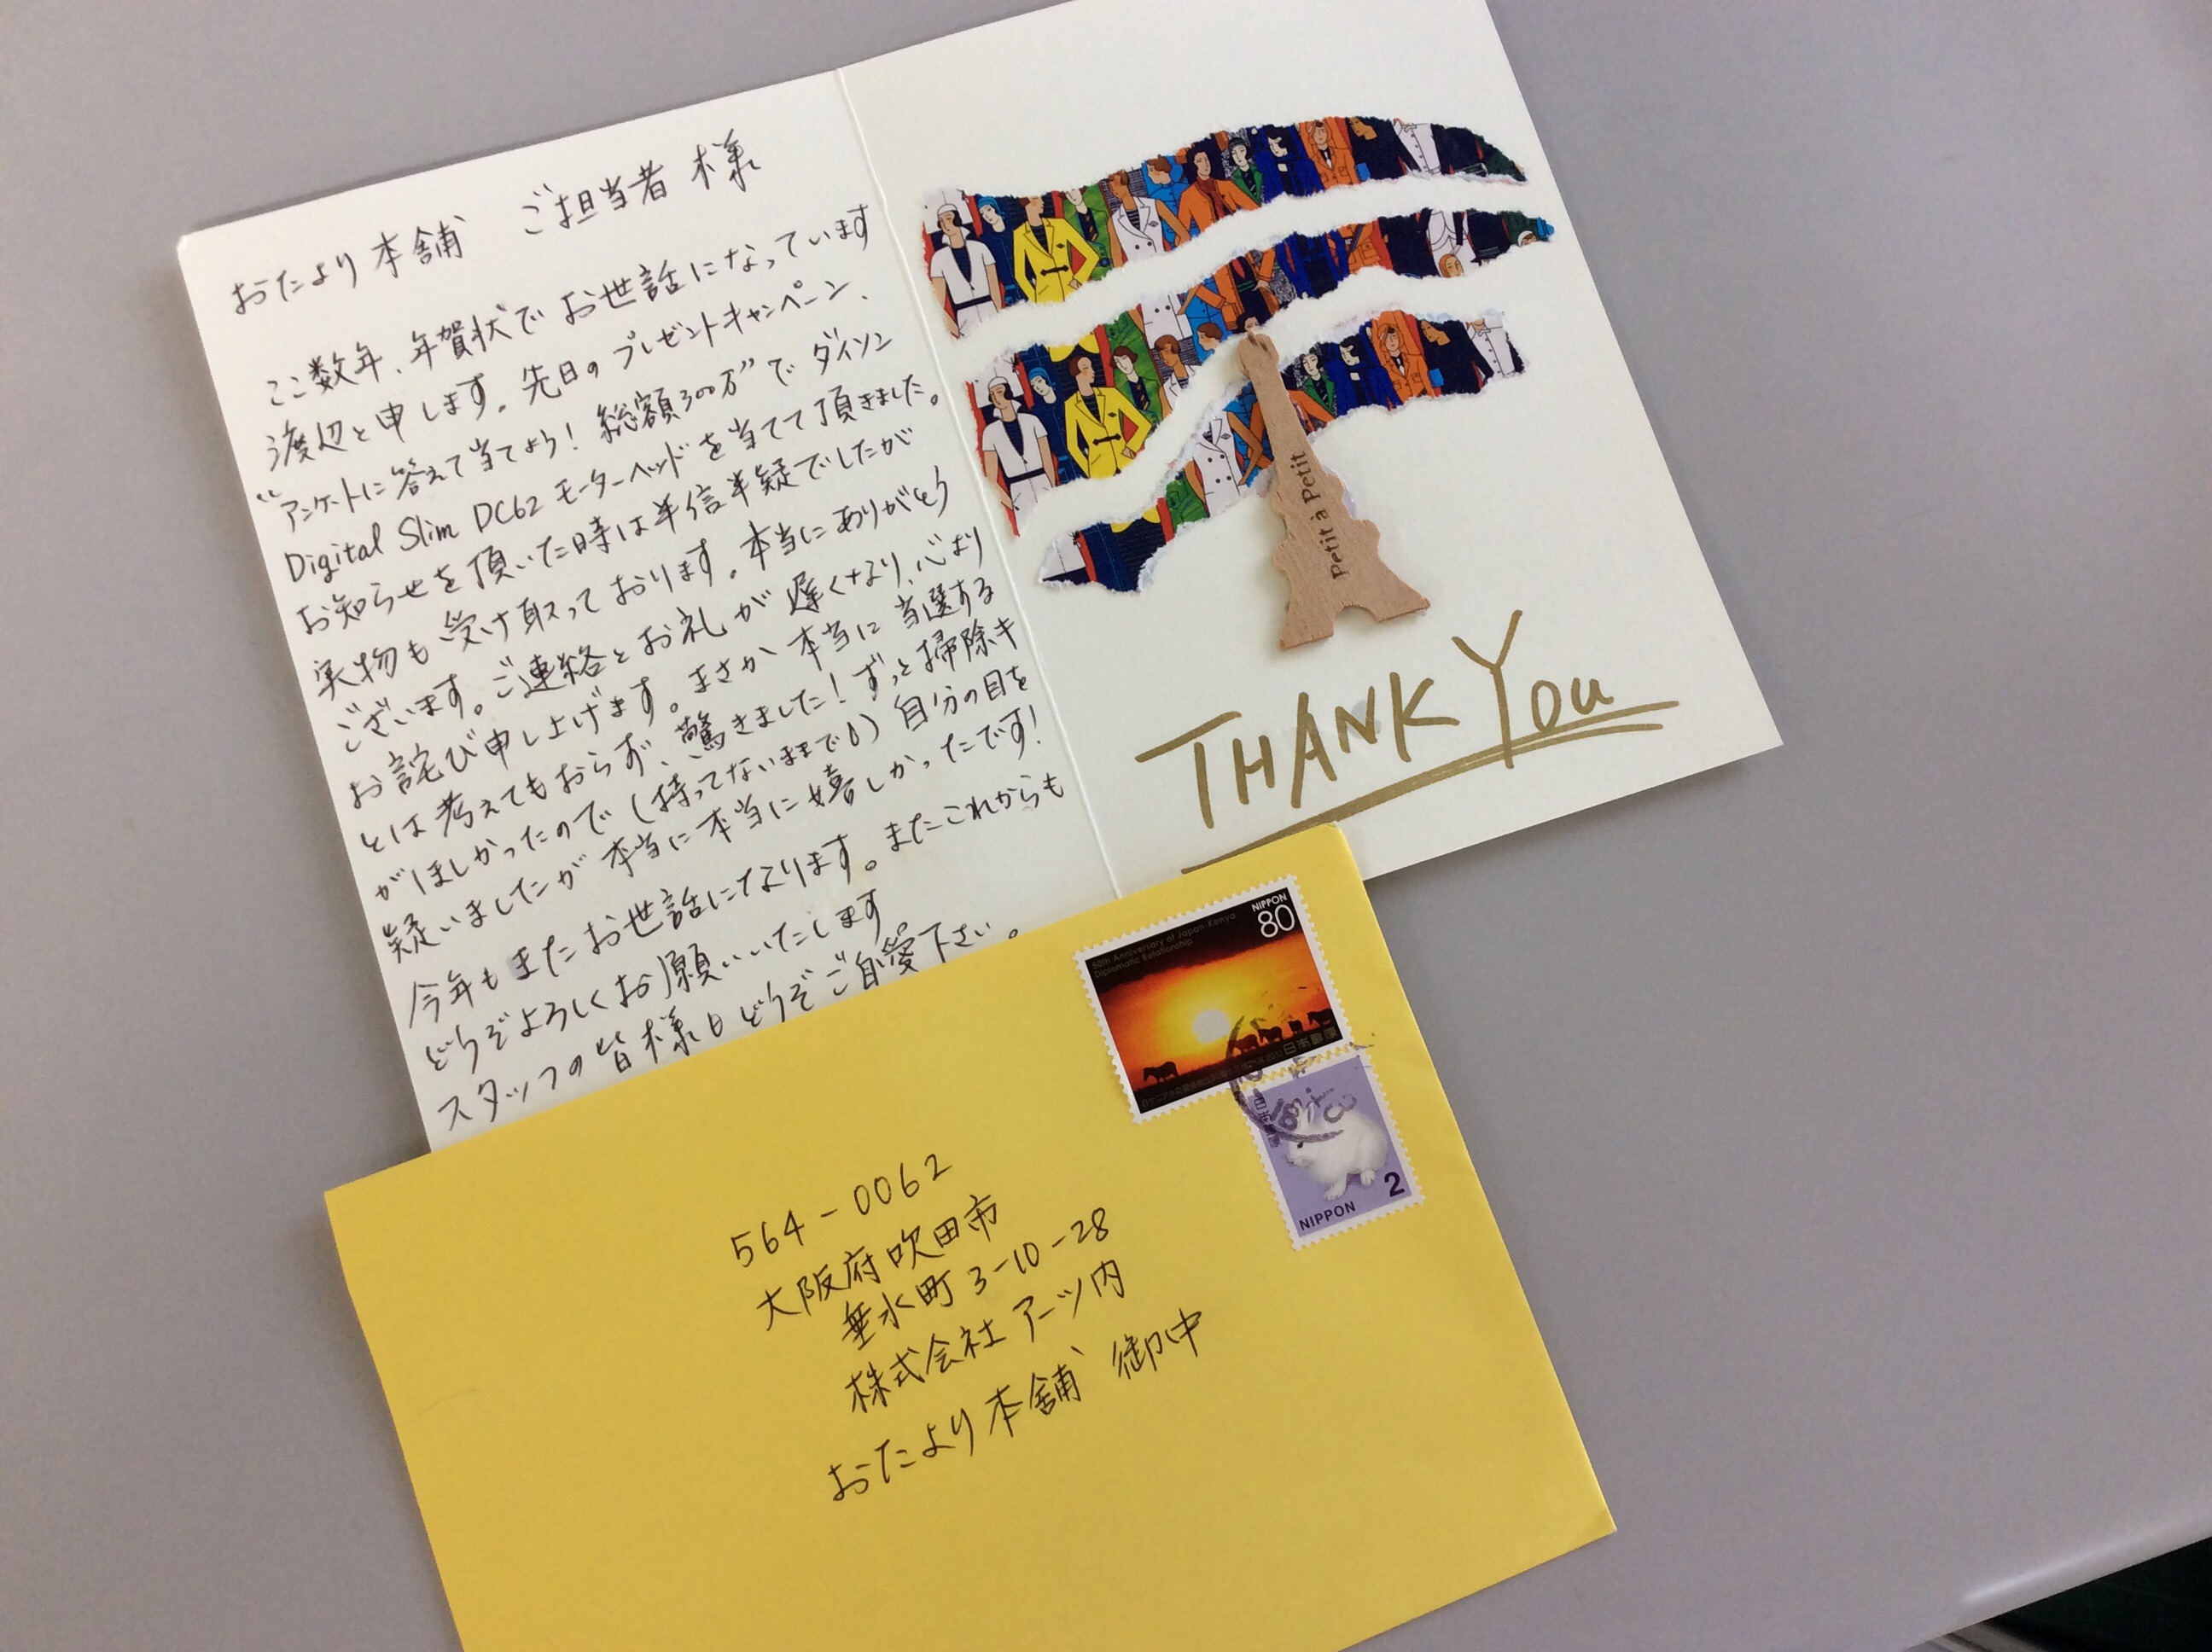 おたより本舗 ご担当者 様
ここ数年、年賀状でお世話になっています
渡辺と申します。先日のプレゼントキャンペーン、
"アンケートに答えて当てよう! 総額300万"で ダイソン
Digital Slim DC62 モーターヘッドを当てて頂きました。
お知らせを頂いた時は半信半疑でしたが
実物も受け取っております。本当にありがとう
ございます。ご連絡とお礼が遅くなり、心より
お詫び申し上げます。まさか本当に当選する
とは考えてもおらず、驚きました! ずっと掃除キ
がほしかったので(持ってないままで
自分の目を
疑いましたが本当に本当に嬉しかったです!
今年もまたお世話になります。またこれからも
どうぞよろしくお願いいたします
スタッフの皆様もどうぞご自愛下さい。
Petit à Petit
THANK YOU
NIPPON
80
50th Anniversary of Japan-Kenya
Diplomatic Relationship
日本郵便
NIPPON
2
564-0062
大阪府吹田市
垂水町3-10-28
株式会社アーツ内
おたより本舗 御中